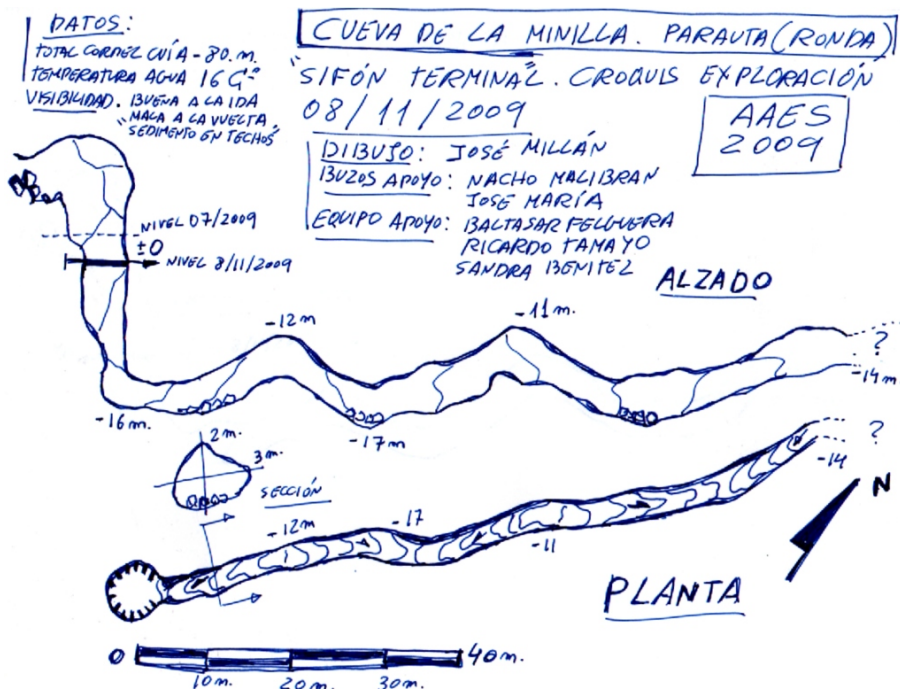 DATOS:
TOTAL CORDEL GUÍA - 80. m.
TEMPERATURA AGUA 16 Gº
VISIBILIDAD. BUENA A LA IDA
MALA A LA VUELTA
"SEDIMENTO EN TECHOS"
CUEVA DE LA MINILLA. PARAUTA (RONDA)
"SIFÓN TERMINAL". CROQUIS EXPLORACIÓN
08/11/2009
AAES
2009
DIBUJO: JOSÉ MILLÁN
BUZOS APOYO: NACHO MALIBRAN
JOSE MARÍA
EQUIPO APOYO: BALTASAR FELGUERA
RICARDO TAMAYO
SANDRA BENITEZ
NIVEL 07/2009
±0
NIVEL 8/11/2009
ALZADO
-12m
-11m.
?
-14m
-16m.
-17m
2m.
3m.
SECCIÓN
?
-14
N
-12m
-17
-11
PLANTA
0
40m.
10m.
20m.
30m.